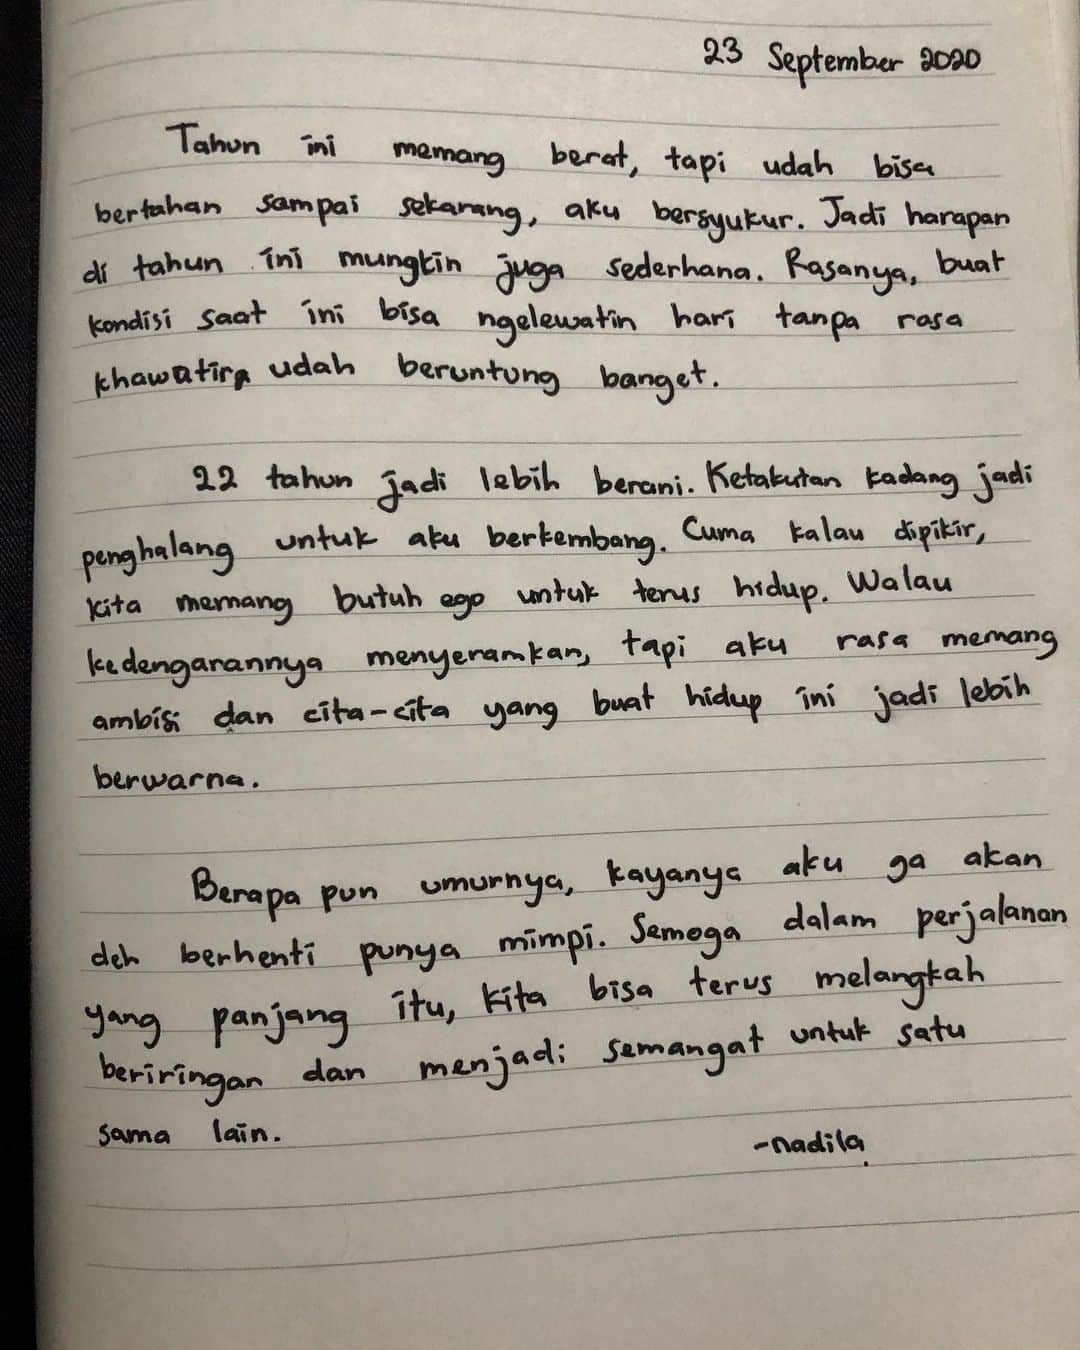 23 September 2020
Tahun ini memang berat, tapi udah bisa
bertahan sampai sekarang, aku bersyukur. Jadi harapan
di tahun ini mungkin juga sederhana. Rasanya, buat
kondisi saat ini bisa ngelewatin hari tanpa rasa
khawatir udah beruntung banget.
22 tahun jadi lebih berani. Ketakutan kadang jadi
penghalang untuk aku berkembang. Cuma kalau dipikir,
kita memang butuh ego untuk terus hidup. Walau
kedengarannya menyeramkan, tapi aku rasa memang
ambisi dan cita-cita yang buat hidup ini jadi lebih
berwarna.
Berapa pun umurnya, kayanya aku ga akan
deh berhenti punya mimpi. Semoga dalam perjalanan
yang panjang itu, kita bisa terus melangkah
beriringan dan menjadi semangat untuk satu
sama lain.
-nadila